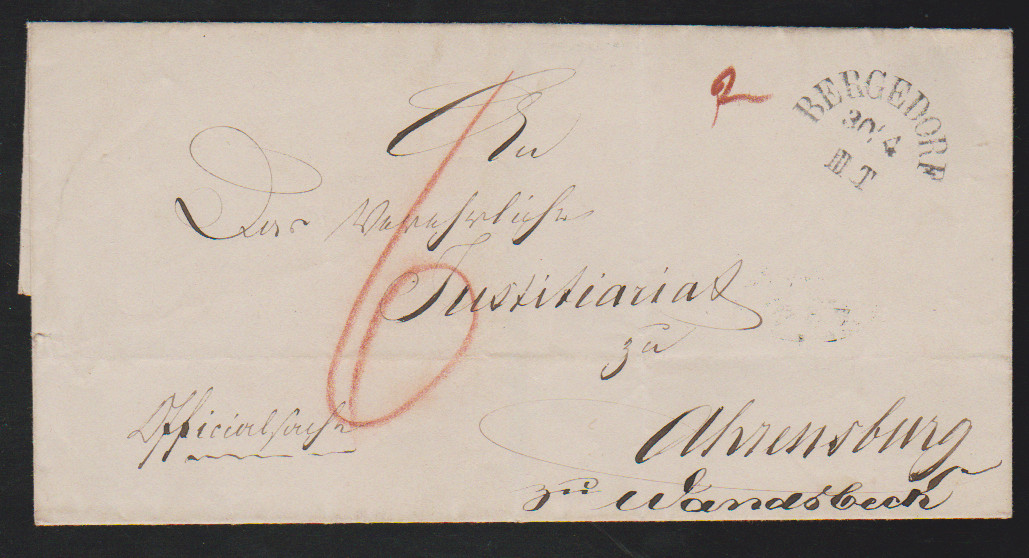 BERGEDORF
30/4
III T
2
An
Das Verehrliche
Justitiariat
zu
6
Officialsache
Ahrensburg
zu Wandsbeck